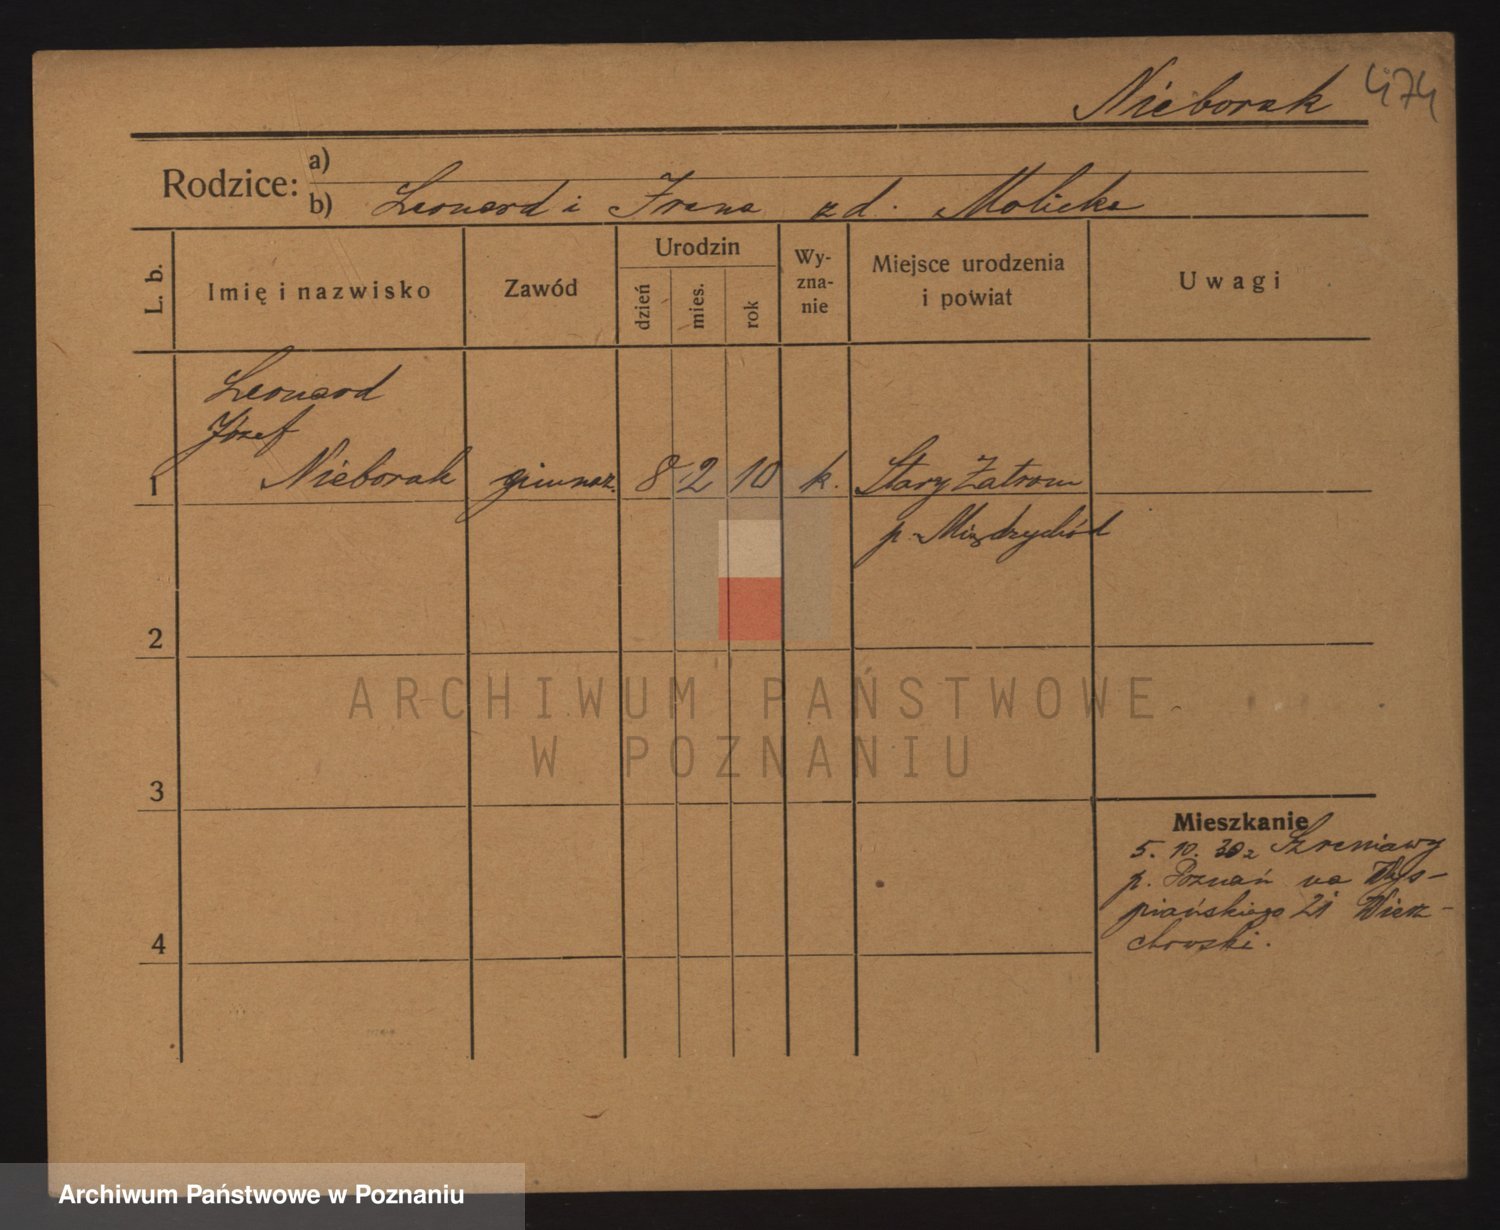 Nieborak 474
Rodzice: a)
b) Leonard i Irena z d. Molicka
L. b.
Imię i nazwisko
Zawód
Urodzin
dzień
mies.
rok
Wy-
zna-
nie
Miejsce urodzenia
i powiat
Uwagi
Leonard
Józef
1 Nieborak gimnaz. 8 2 10 k. Stary Zatrom
p. Międzychód
2
3
4
ARCHIWUM PAŃSTWOWE
W POZNANIU
Mieszkanie
5. 10. 30 z Szreniawy
p. Poznań na Wys-
piańskiego 21 Wierz-
chowski.
Archiwum Państwowe w Poznaniu